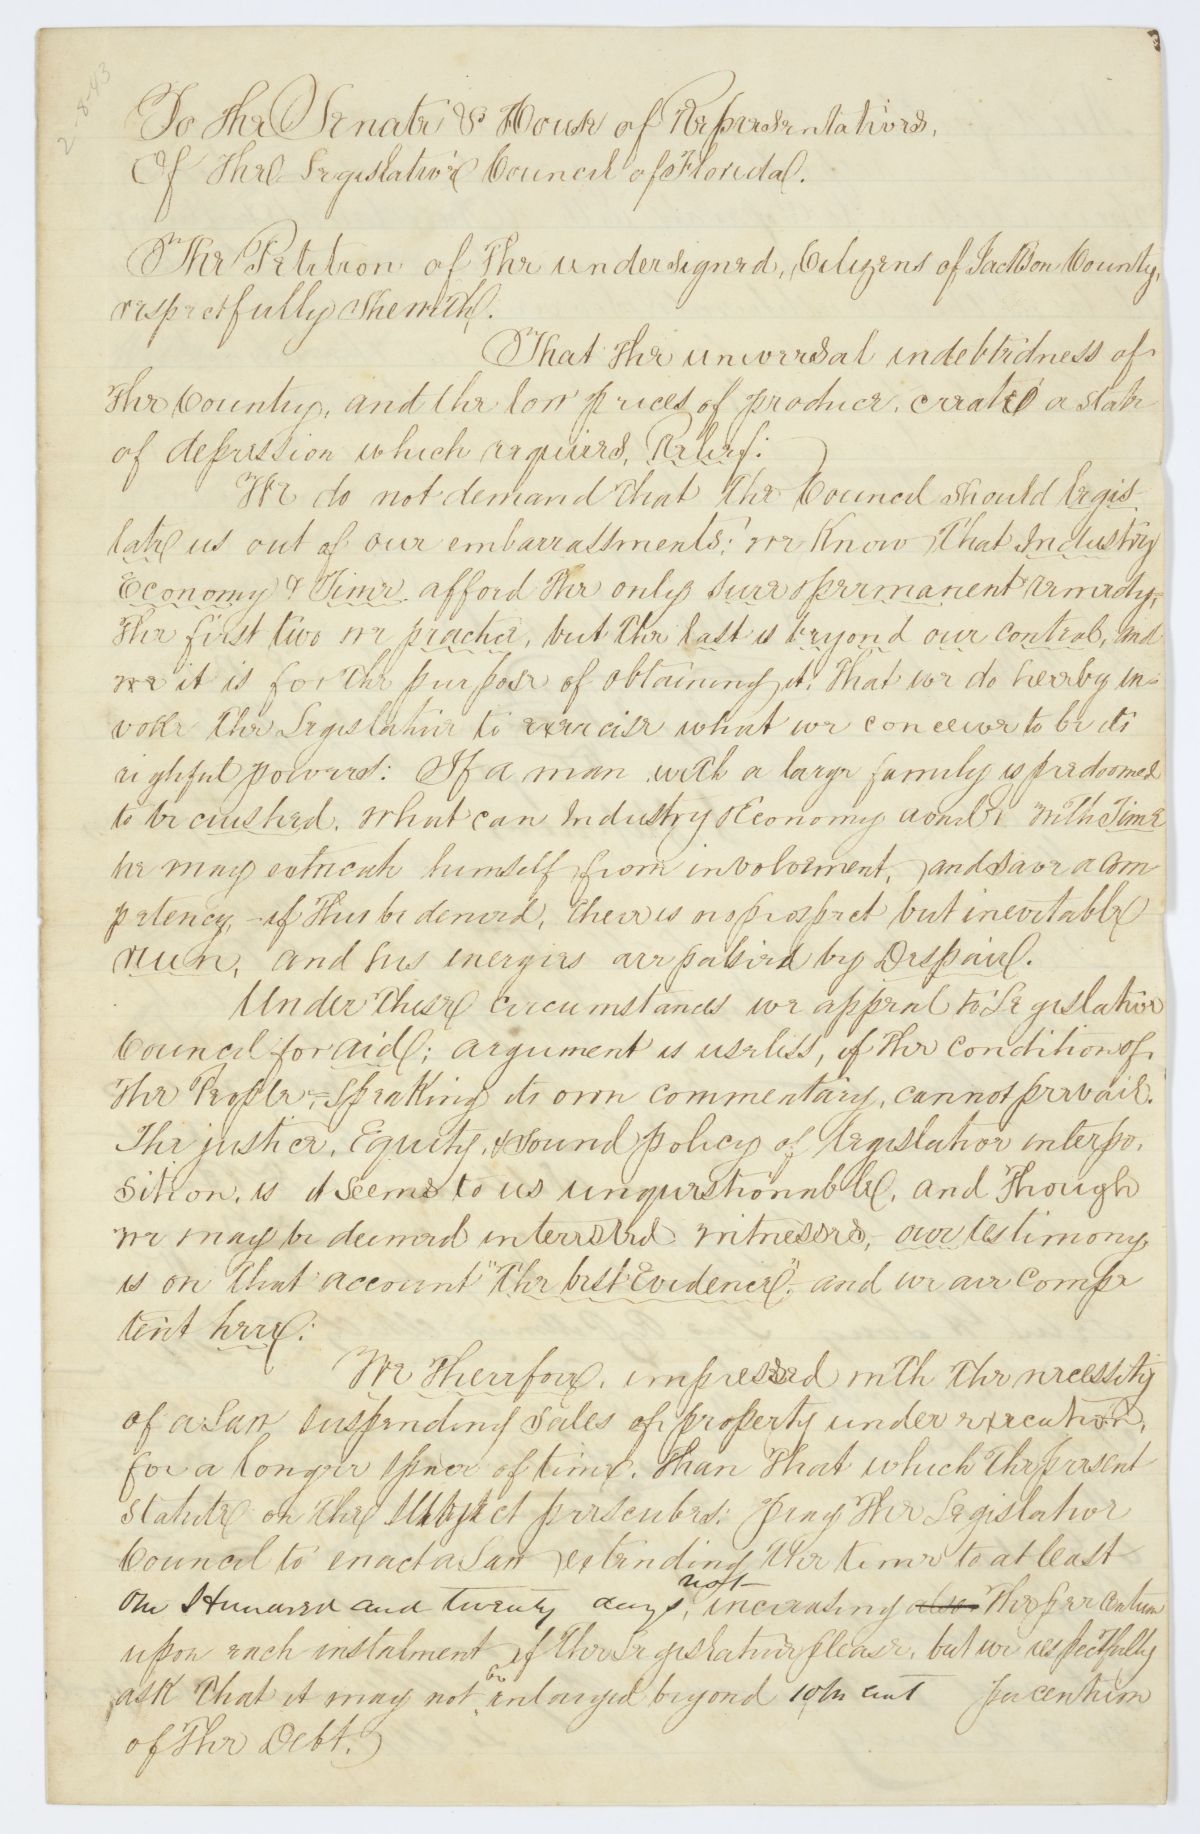 2-8-43
To The Senate & House of Representatives,
Of The Legislative Council of Florida.
The Petition of The undersigned, Citizens of Jackson County,
respectfully Sheweth.
That The universal indebtedness of
The Country, and the low prices of produce, create a state
of depression which requires, Relief:
We do not demand that The Council should legis-
late us out of our embarrassments; we Know That Industry
Economy & Time afford The only sure & permanent remedy,
The first two we practice, but The last is beyond our control, and
we it is for The purpose of obtaining it, That we do hereby in-
voke The Legislative to exercise what we conceive to be its
rightful powers: If a man with a large family is predoomed
to be crushed, what can Industry & Economy avail? With Time
he may extricate himself from involvement, and save a com
petency, if This be denied, there is no prospect but inevitable
ruin, and his energies are palsied by Despair.
Under These circumstances we appeal to Legislative
Council for aid; argument is useless, if The condition of
The People, Speaking its own commentary, cannot prevail.
The justice, Equity, & sound policy of legislative interpo-
sition, is it seems to us unquestionable, and Though
we may be deemed interested witnesses, our testimony
is on that account "The best Evidence", and we are compe
tent here:
We Therefore, impressed with The necessity
of a Law suspending sales of property under execution,
for a longer space of time, Than That which The present
Statute on The Subject prescribes: pray The Legislative
Council to enact a Law extending The time to at least
One Hundred and twenty days, not increasing also The per centum
upon each instalment if The Legislature please, but we respectfully
ask That it may not be enlarged beyond 10 per cent per centum
of The Debt.